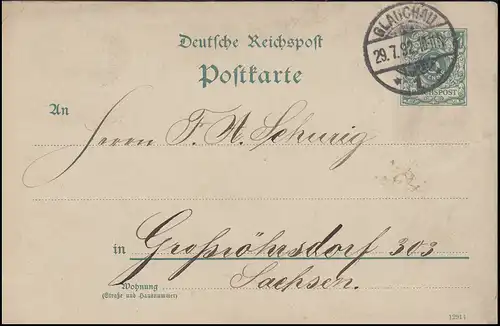 GLAUCHAU
29.7.92
REICHSPOST
Deutsche Reichspost
Postkarte
An
Herrn F. A. Schurig
in Großröhrsdorf 303
Sachsen.
Wohnung
(Straße und Hausnummer)